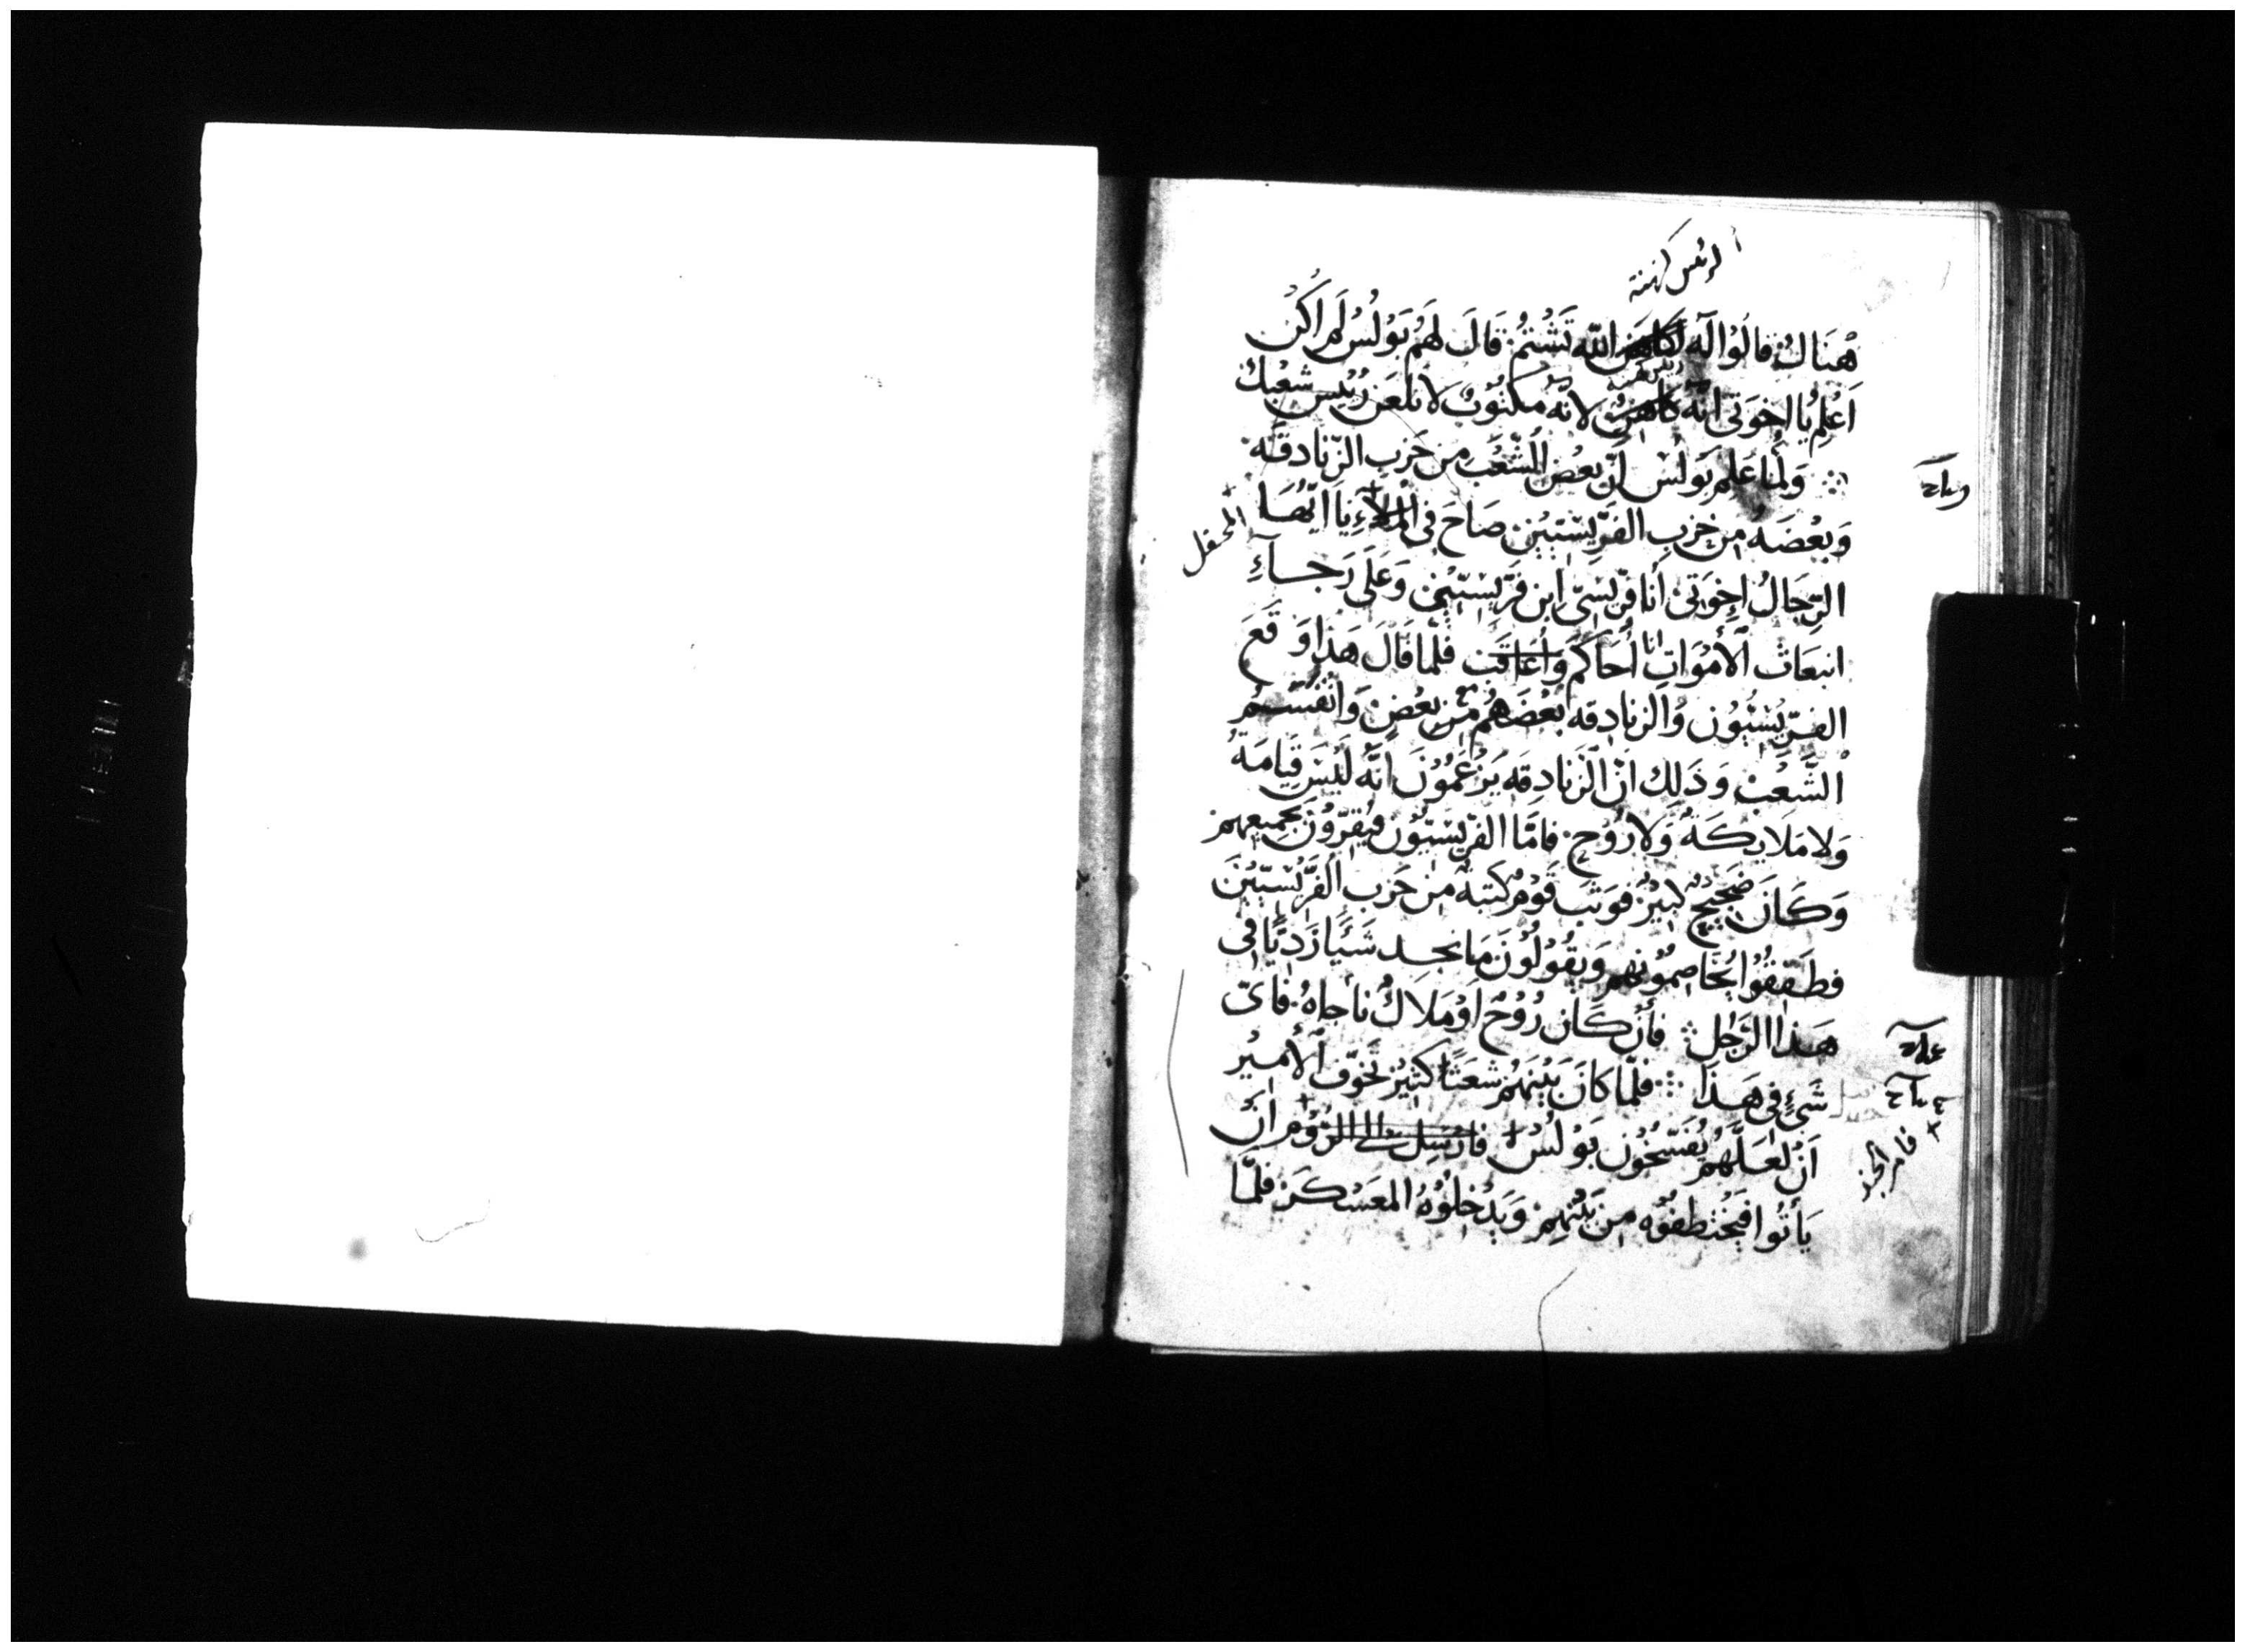 الرئيس كهنة
هُنَاكَ قالُوا لَه لكاهن الله تَشْتُمُ قَالَ لَهُم بَولُسُ لَم اكُن
اَعْلَم يَا اخوَتى انّه كاهن لانّه مكتُوبٌ لا تلعَن رَئيس شعْبك
وَلمّا عَلم بَولُس انّ بعْض الشّعْب من حَزب الزّنادقَه
وَبَعْضَه من حزب الفَرّيسّيّين صَاحَ فى الملاءِ يَا ايّهَا
المحفل
الرّجَالُ اخوَتى أنا فرّيسىّ ابن فَرّيسّيّن وَعَلَى رَجَآءِ
انبعَاث الأموَاتِ انا أُحَاكَم وأُعَاقَب فلمّا قَالَ هَذا وَقَعَ
الفرّيسّيّون وَالزنادقه بَعْضَهُم من بعْض وَانْقسَم
الشَّعْب وَذَلك انّ الزّنادقَه يَزْعَمُونَ انّه ليْسَ قيَامَة
وَلا مَلايكَة وَلا رُوح فامّا الفرّيسّيون فيقرّون بجميعهم
وَكَانَ ضَجيج كبيرٌ فوثب قَوْم كتبة من حَزب الفَرّيسّيّينَ
فطَفقُوا يُخَاصمُونهم وَيقُولُونَ مَا نجد شَيًا رَديًّا فى
هَذا الرّجُل فأن كَان رُوْحٌ اَوْ مَلاكٌ ناجاهُ فاىّ
شَيْءٍ فى هَذَا فلمّا كانَ بَيْنَهُم شعَثًا كثيرٌ تخوّف الأمير
اَنْ لعَلَّهُم يُفَسّخُون بَولُسَ فارسل الى الرُّوْم انْ
فامر الجند
يَأتُوا فيَخْتطفُوه من بَيْنهم وَيَدْخلُوْهُ المعَسْكر فلمّا